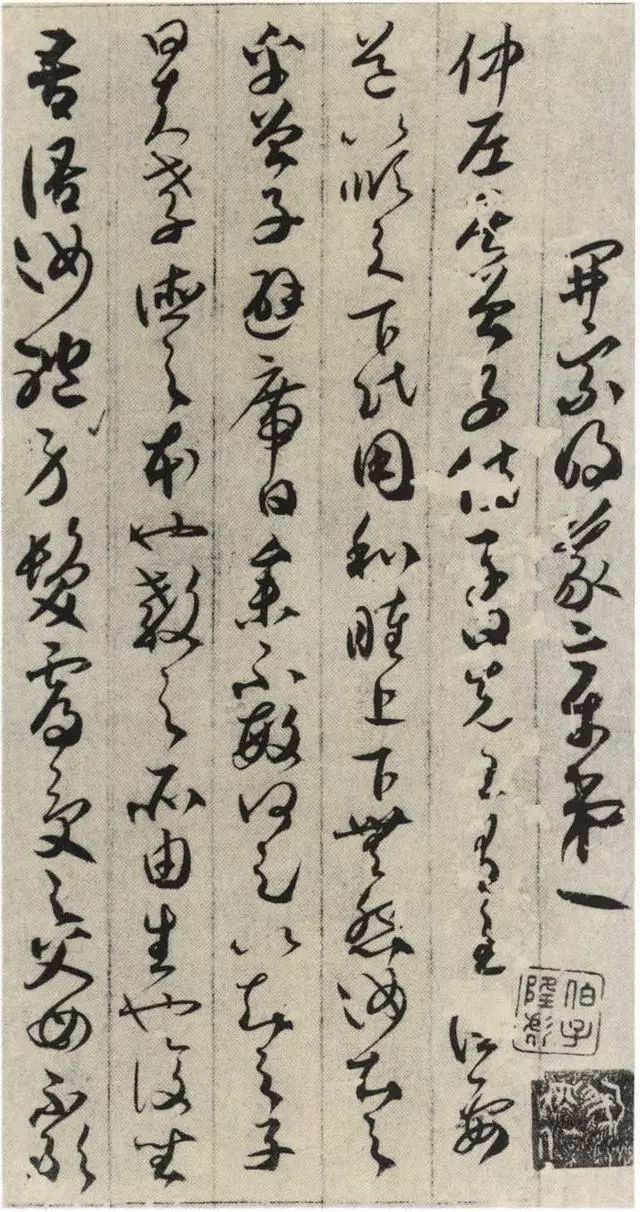 開宗明義章第一
仲尼居曾子侍子曰先王有至德要
道以順天下民用和睦上下無怨汝知之
乎曾子避席曰參不敏何足以知之子
曰夫孝德之本也教之所由生也復坐
吾語汝體身髮膚受之父母不敢